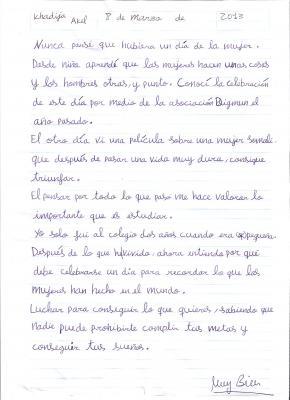 Khadija Akel 8 de Marzo de 2013
Nunca pensé que hubiera un día de la mujer.
Desde niña aprendí que las mujeres hacen unas cosas
y los hombres otras, y punto. Conocí la celebración
de este día por medio de la asociación Digmun el
año pasado.
El otro día vi una película sobre una mujer somalí
que después de pasar una vida muy dura, consigue
triunfar.
El pensar por todo lo que paso me hace valorar lo
importante que es estudiar.
Yo solo fui al colegio dos años cuando era pequeña.
Después de lo que he vivido, ahora entiendo por qué
debe celebrarse un día para recordar lo que las
mujeres han hecho en el mundo.
Luchar para conseguir lo que quieres, sabiendo que
nadie puede prohibirte cumplir tus metas y
conseguir tus sueños.
Muy Bien